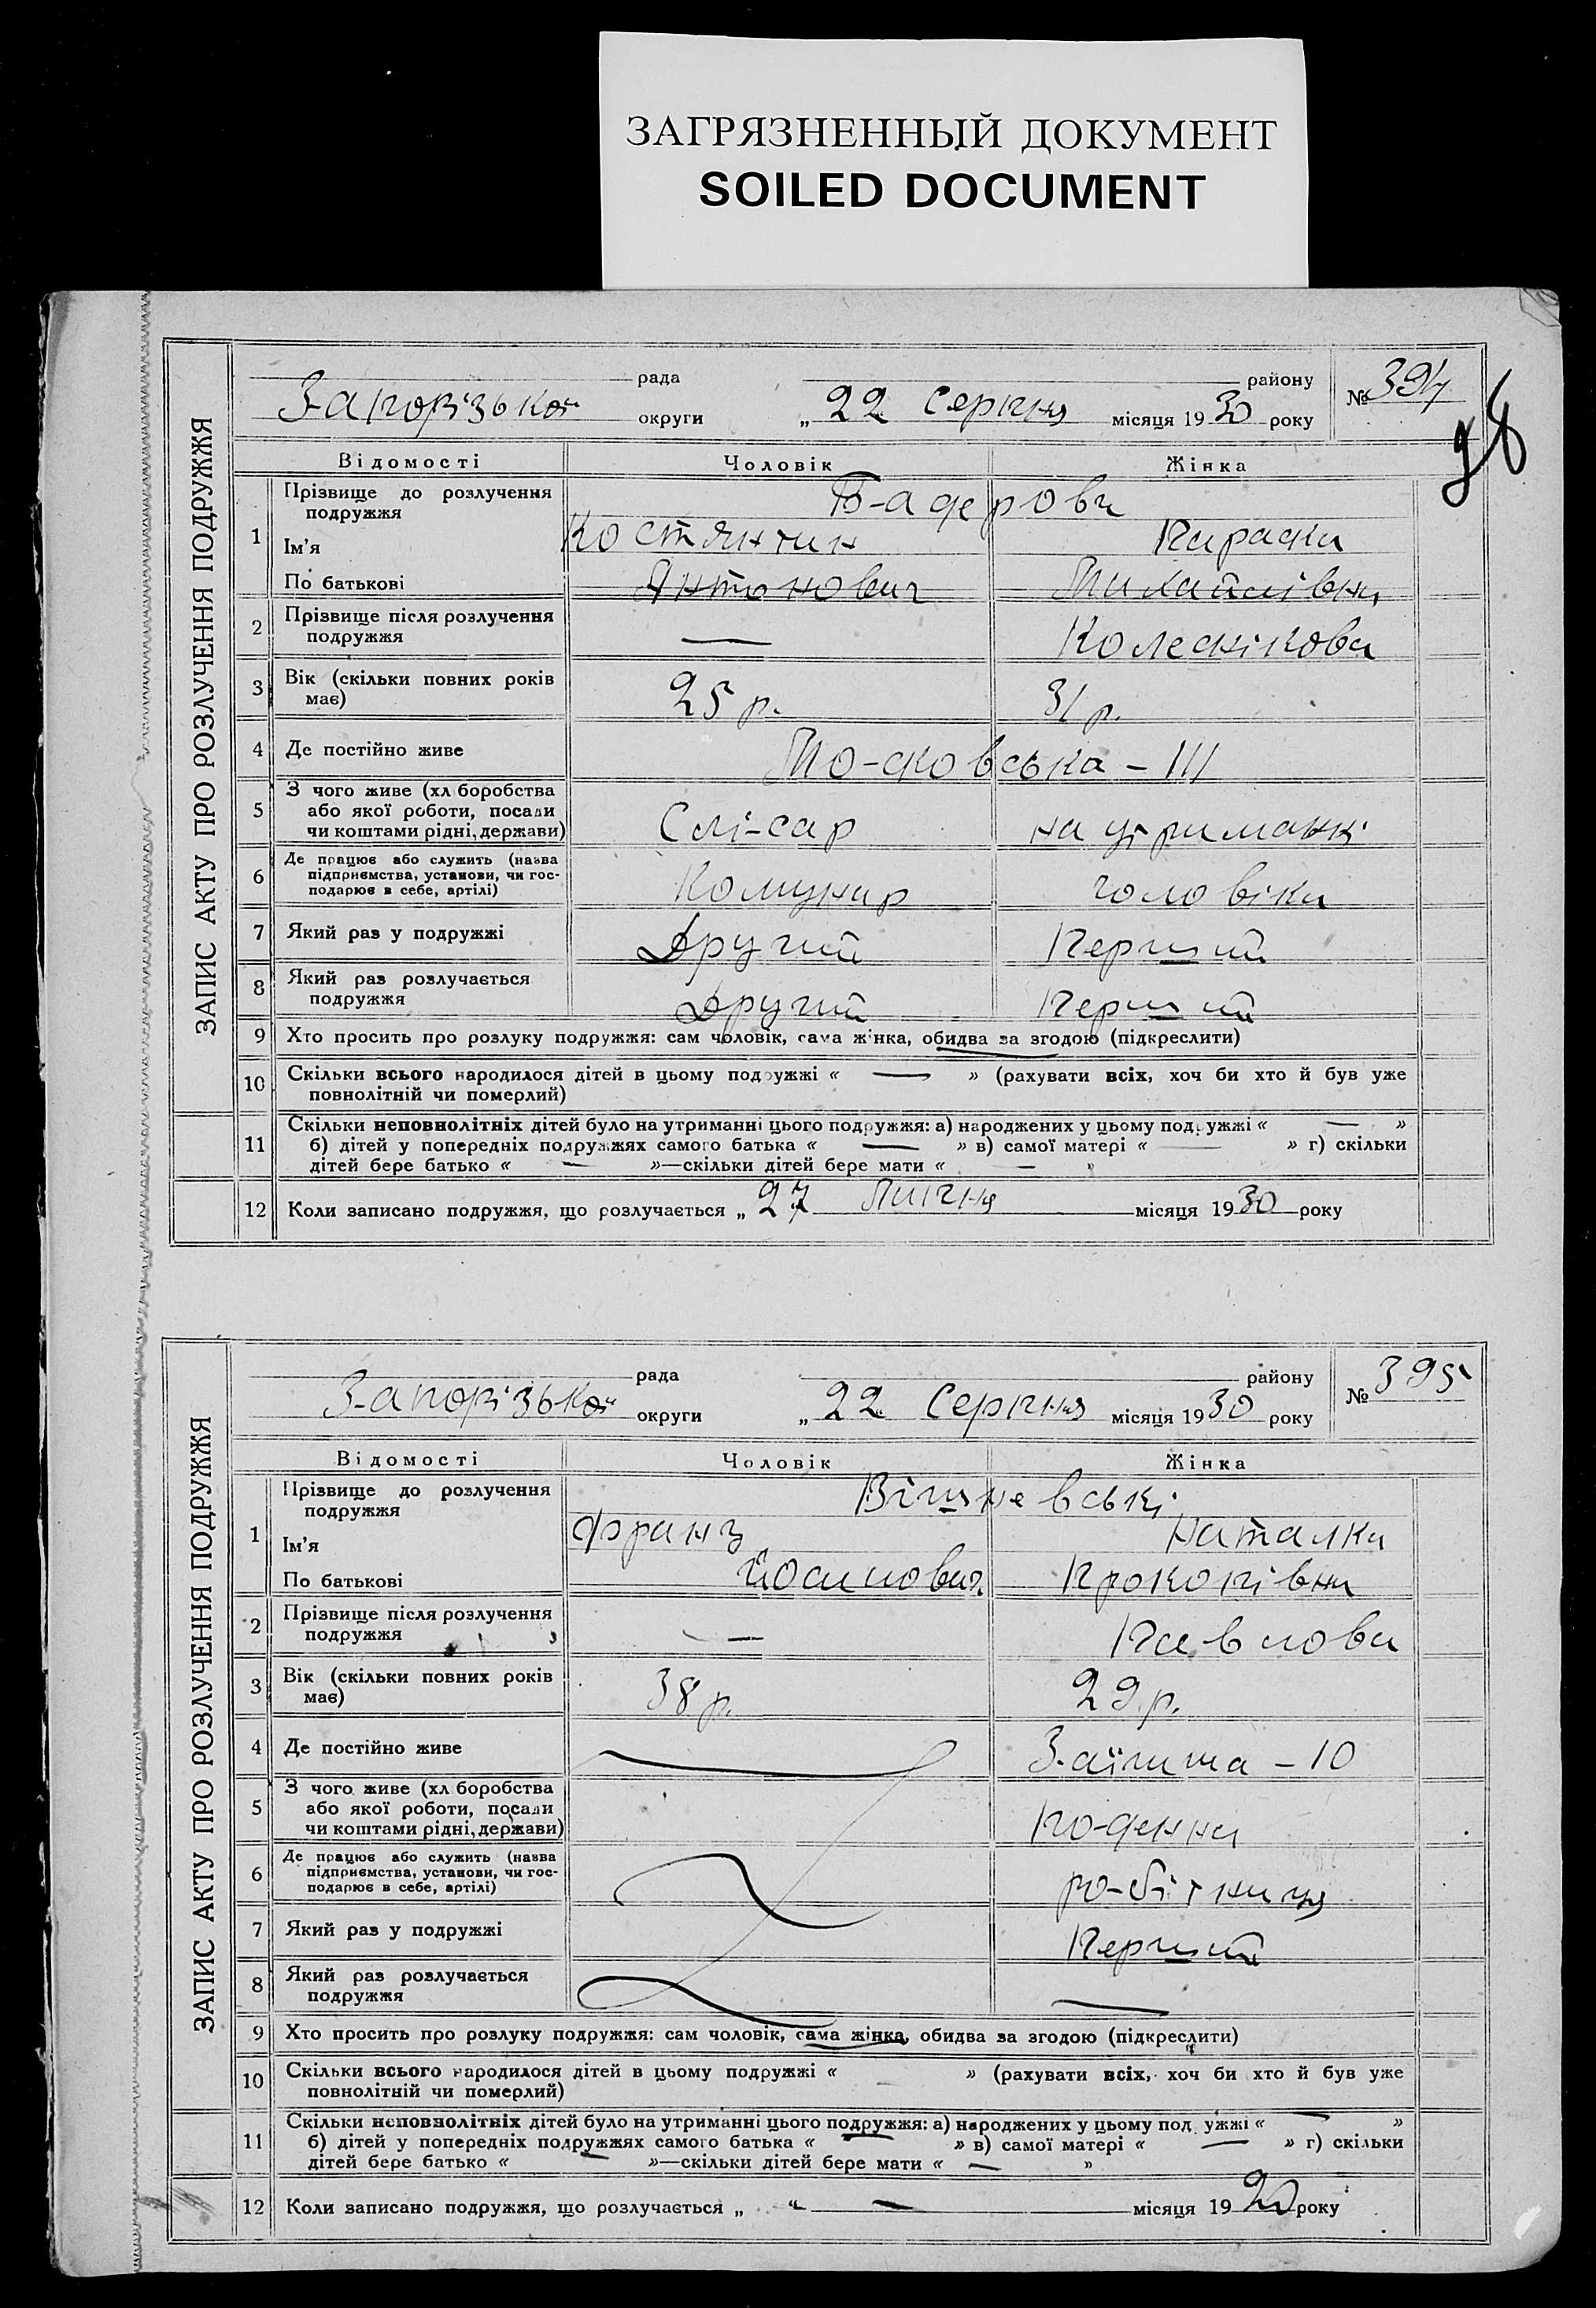 ЗАГРЯЗНЕННЫЙ ДОКУМЕНТ
SOILED DOCUMENT
98
ЗАПИС АКТУ ПРО РОЗЛУЧЕННЯ ПОДРУЖЖЯ
рада району № 394
Запорізької округи „ 22 Серпня місяця 1930 року
Відомості Чоловік Жінка
1 Прізвище до розлучення подружжя Бадерови
Ім'я Костянтин Параска
По батькові Антонович Михайлівна
2 Прізвище після розлучення подружжя — Колеснікова
3 Вік (скільки повних років має) 25 р. 31 р.
4 Де постійно живе Московська – 111
5 З чого живе (хліборобства або якої роботи, посади чи коштами рідні, держави) Слісар на утриманні
6 Де працює або служить (назва підприємства, установи, чи господарює в себе, артілі) Комунар чоловіка
7 Який раз у подружжі Другий Перший
8 Який раз розлучається подружжя Другий Перший
9 Хто просить про розлуку подружжя: сам чоловік, сама жінка, обидва за згодою (підкреслити)
10 Скільки всього народилося дітей в цьому подружжі « — » (рахувати всіх, хоч би хто й був уже
повнолітній чи померлий)
11 Скільки неповнолітніх дітей було на утриманні цього подружжя: а) народжених у цьому подружжі « — »
б) дітей у попередніх подружжях самого батька « — » в) самої матері « — » г) скільки
дітей бере батько « — »—скільки дітей бере мати « — »
12 Коли записано подружжя, що розлучається „ 27 Липня місяця 1930 року
ЗАПИС АКТУ ПРО РОЗЛУЧЕННЯ ПОДРУЖЖЯ
рада району № 395
Запорізької округи „ 22 Серпня місяця 1930 року
Відомості Чоловік Жінка
1 Прізвище до розлучення подружжя Вішневські
Ім'я Франц Наталка
По батькові Йосипович Прокопівна
2 Прізвище після розлучення подружжя — Павлова
3 Вік (скільки повних років має) 38 р. 29 р.
4 Де постійно живе — – 10
5 З чого живе (хліборобства або якої роботи, посади чи коштами рідні, держави) поденна
6 Де працює або служить (назва підприємства, установи, чи господарює в себе, артілі) робітниця
7 Який раз у подружжі Перший
8 Який раз розлучається подружжя —
9 Хто просить про розлуку подружжя: сам чоловік, сама жінка, обидва за згодою (підкреслити)
10 Скільки всього народилося дітей в цьому подружжі « » (рахувати всіх, хоч би хто й був уже
повнолітній чи померлий)
11 Скільки неповнолітніх дітей було на утриманні цього подружжя: а) народжених у цьому подружжі « — »
б) дітей у попередніх подружжях самого батька « — » в) самої матері « — » г) скільки
дітей бере батько « — »—скільки дітей бере мати « — »
12 Коли записано подружжя, що розлучається „ “ — місяця 1920 року